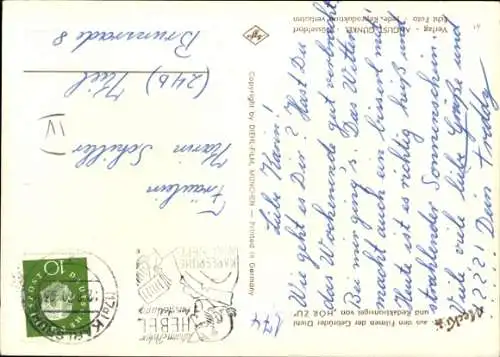 Liebe Karin!
Wie geht es Dir? Hast Du
das Wochenende gut verbracht?
Bei mir ging's. Das Wetter
macht auch ein bisserl mit.
Heute ist es richtig heiß und
strahlender Sonnenschein.
Viele viele liebe Grüße und
Dein Freddy
aus den Filmen der Gebrüder Diehl
und Redaktionsigel von "HÖR ZU"
174
Copyright by DIEHL-FILM, MÜNCHEN — Printed in Germany
Verlag - AUGUST GUNKEL - Düsseldorf
Echt Foto - Jede Reproduktion verboten
HEBEL
Ausstellung
KARLSRUHE
(17a) KARLSRUHE
10
Fräulein
Karin Schiller
(24b) Kiel
IV